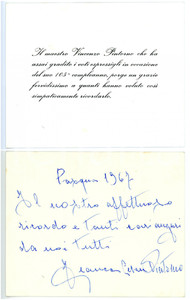 Il maestro Vincenzo Pintorno che ha
assai gradito i voti espressigli in occasione
del suo 105° compleanno, porge un grazie
fervidissimo a quanti hanno voluto così
simpaticamente ricordarlo.
Pasqua 1967
Il nostro affettuoso
ricordo e tanti cari auguri
da noi tutti
Pintorno